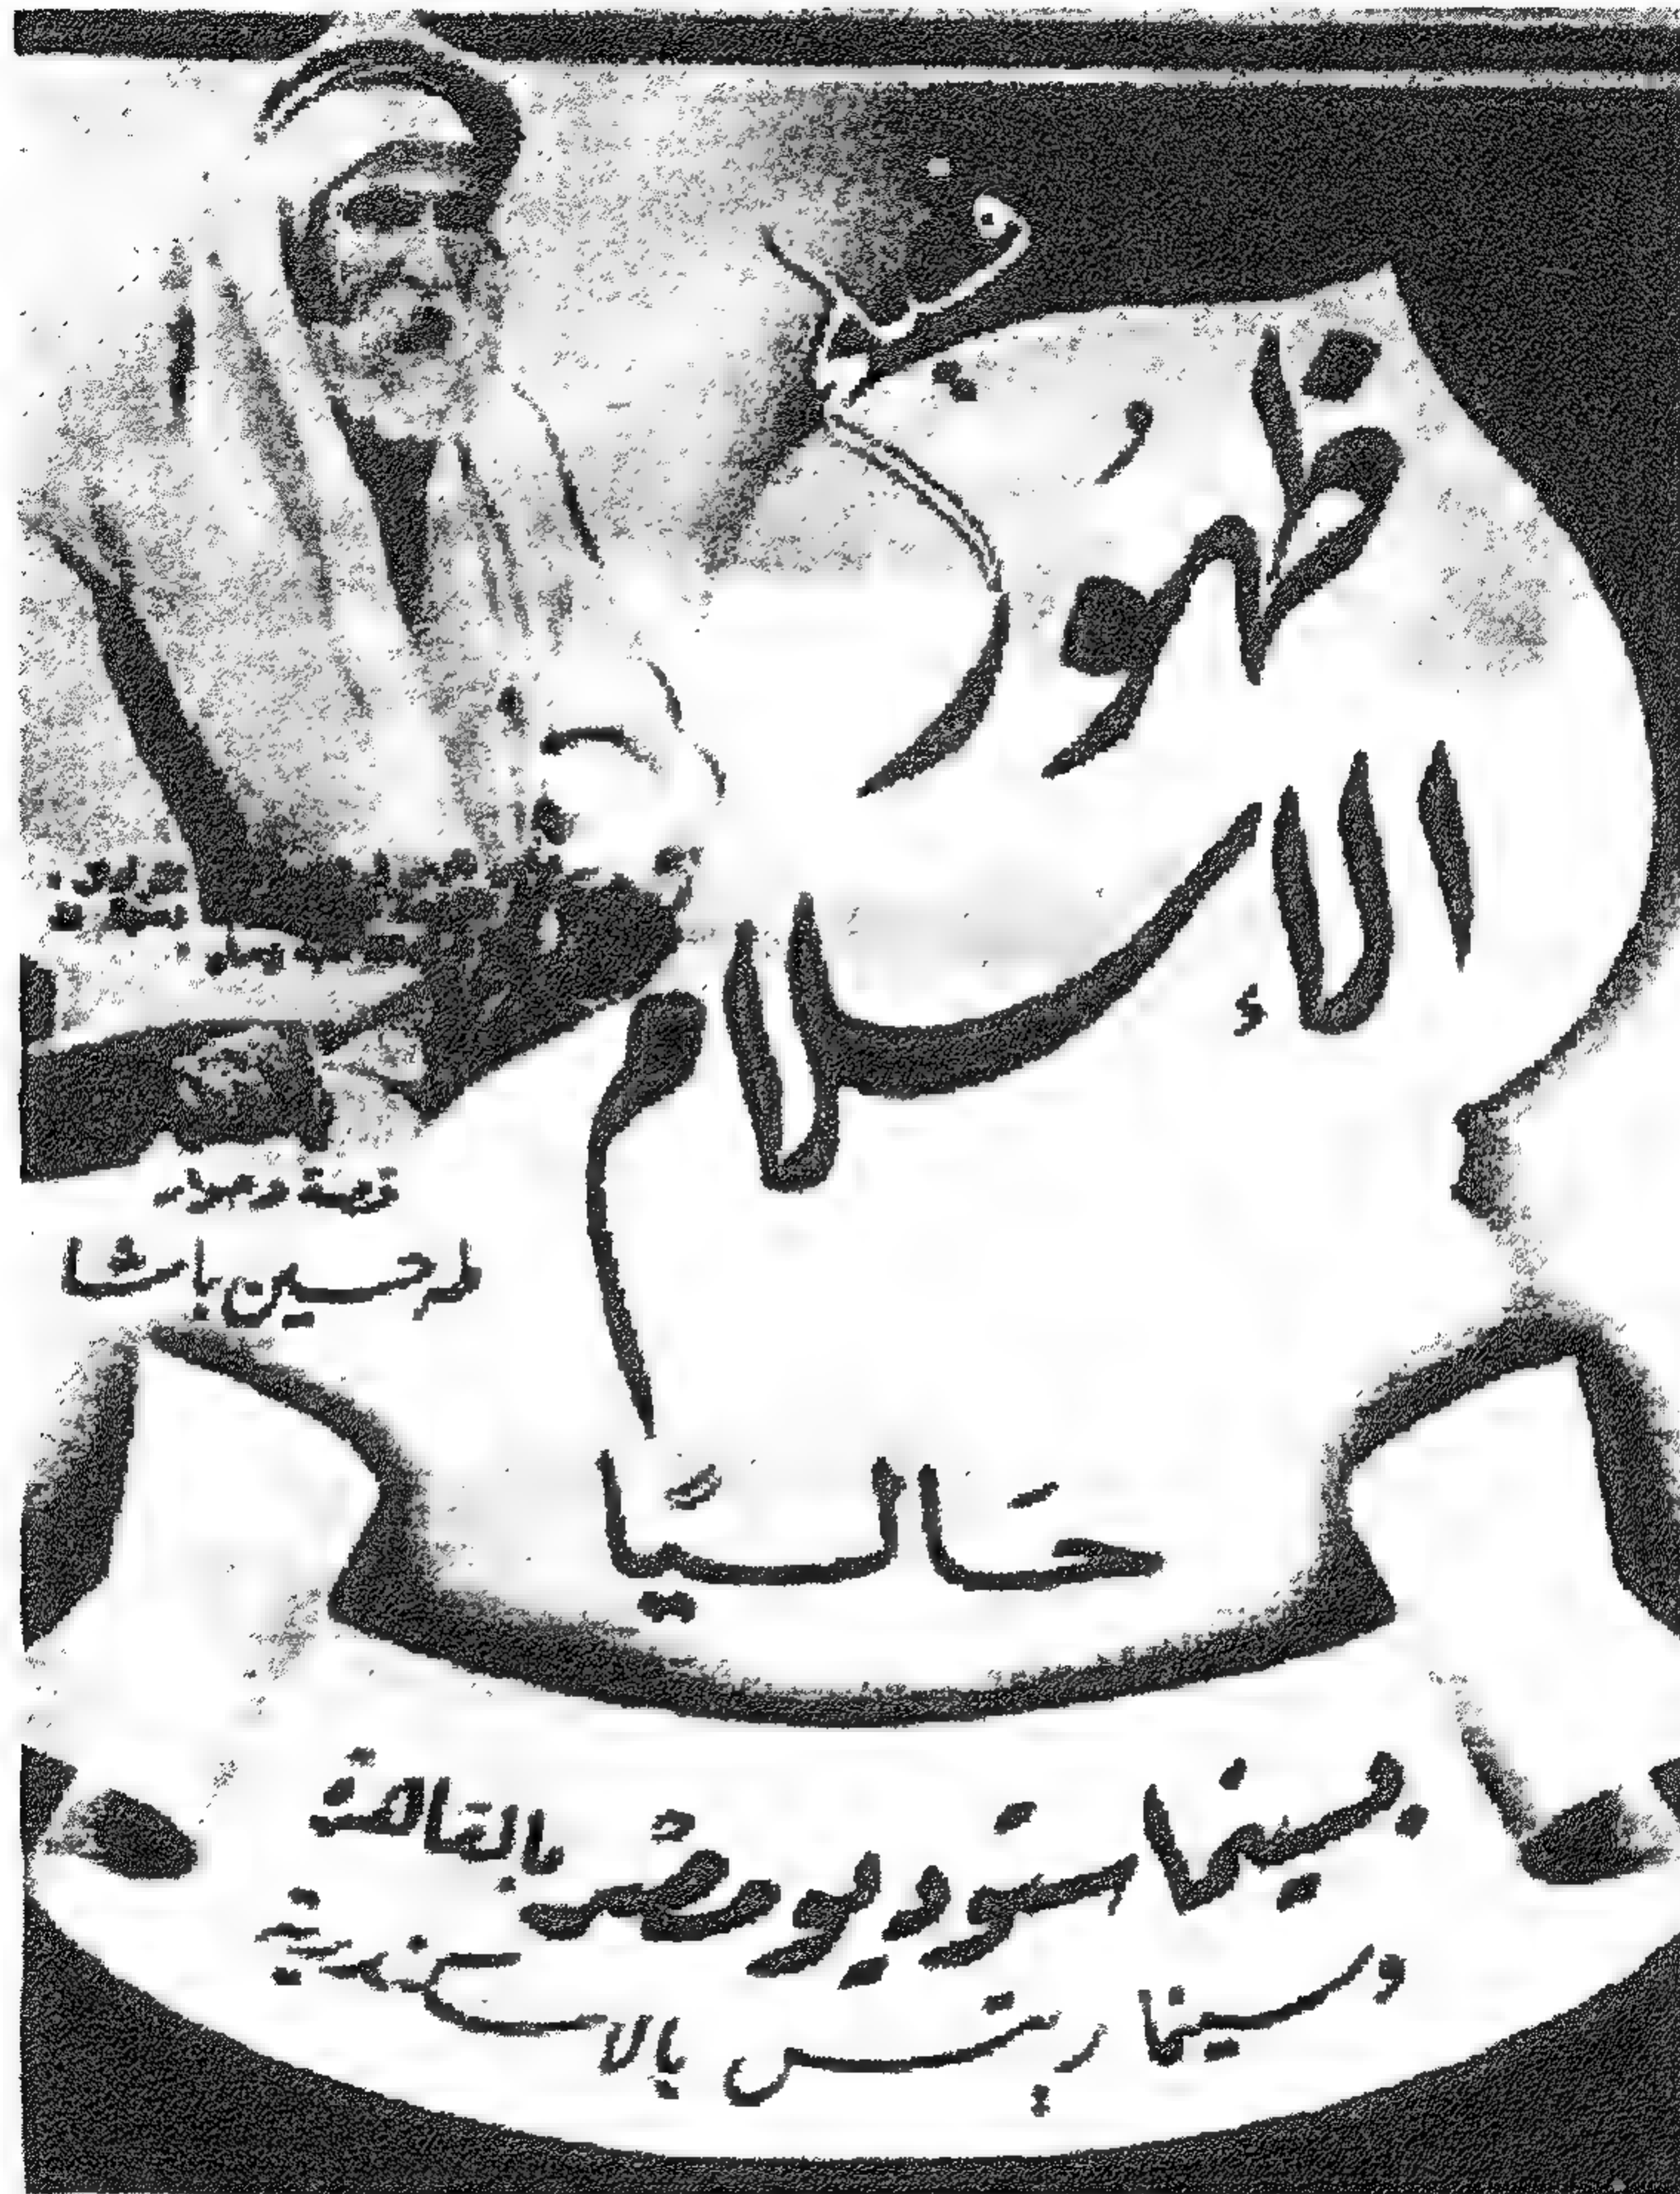 ظُهور
الإسلام
قصة وحوار
طه حسين باشا
حَاليًا
بسينما ستوديو مصر بالقاهرة
وسينما ريتس بالاسكندرية